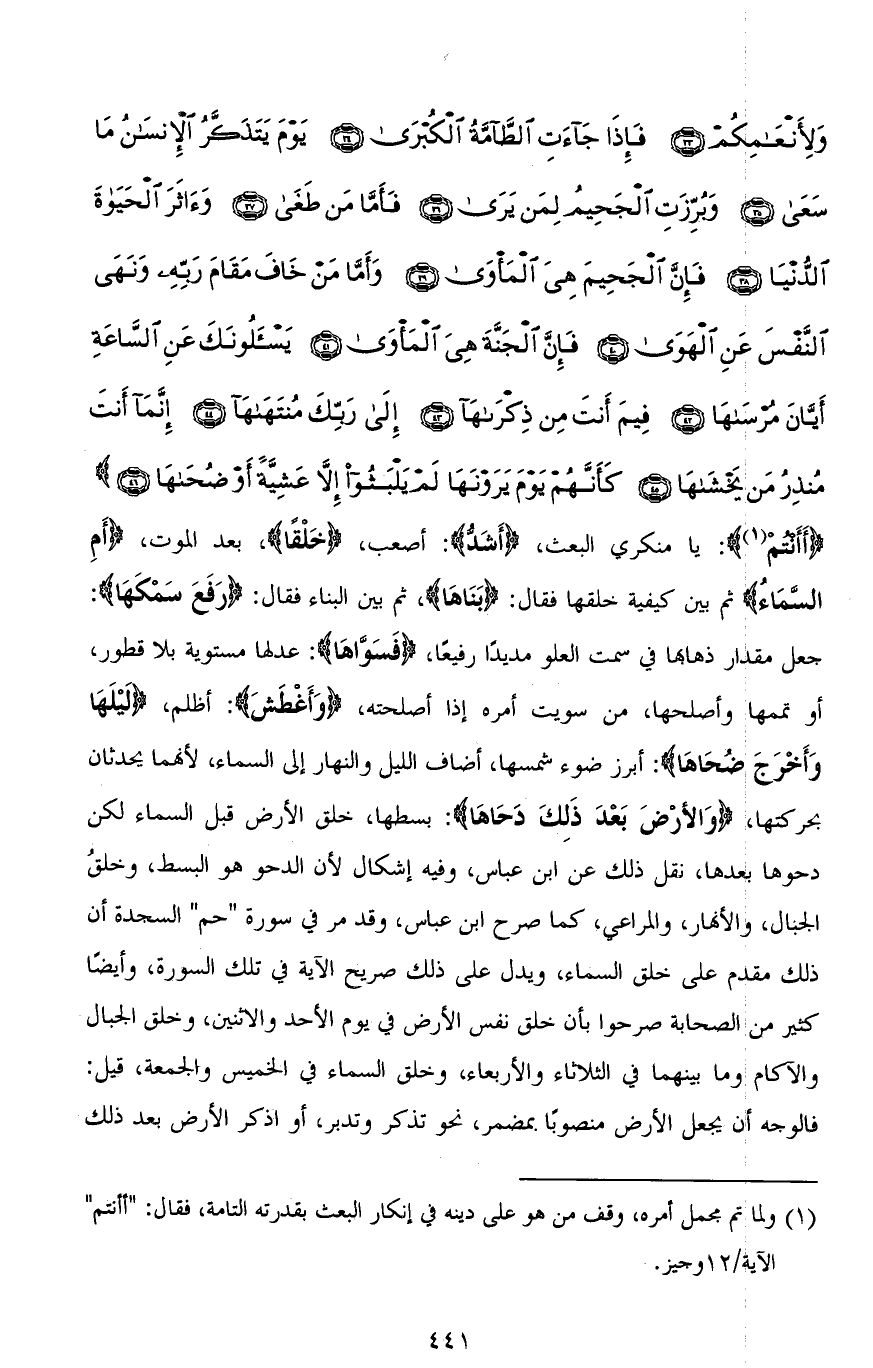 وَلِأَنْعَـٰمِكُمْ ﴿٣٣﴾ فَإِذَا جَآءَتِ ٱلطَّآمَّةُ ٱلْكُبْرَىٰ ﴿٣٤﴾ يَوْمَ يَتَذَكَّرُ ٱلْإِنسَـٰنُ مَا
سَعَىٰ ﴿٣٥﴾ وَبُرِّزَتِ ٱلْجَحِيمُ لِمَن يَرَىٰ ﴿٣٦﴾ فَأَمَّا مَن طَغَىٰ ﴿٣٧﴾ وَءَاثَرَ ٱلْحَيَوٰةَ
ٱلدُّنْيَا ﴿٣٨﴾ فَإِنَّ ٱلْجَحِيمَ هِىَ ٱلْمَأْوَىٰ ﴿٣٩﴾ وَأَمَّا مَنْ خَافَ مَقَامَ رَبِّهِۦ وَنَهَى
ٱلنَّفْسَ عَنِ ٱلْهَوَىٰ ﴿٤٠﴾ فَإِنَّ ٱلْجَنَّةَ هِىَ ٱلْمَأْوَىٰ ﴿٤١﴾ يَسْـَٔلُونَكَ عَنِ ٱلسَّاعَةِ
أَيَّانَ مُرْسَىٰهَا ﴿٤٢﴾ فِيمَ أَنتَ مِن ذِكْرَىٰهَآ ﴿٤٣﴾ إِلَىٰ رَبِّكَ مُنتَهَىٰهَآ ﴿٤٤﴾ إِنَّمَآ أَنتَ
مُنذِرُ مَن يَخْشَىٰهَا ﴿٤٥﴾ كَأَنَّهُمْ يَوْمَ يَرَوْنَهَا لَمْ يَلْبَثُوٓا۟ إِلَّا عَشِيَّةً أَوْ ضُحَىٰهَا ﴿٤٦﴾ ﴾
﴿أَأَنْتُمْ(١)﴾: يا منكري البعث، ﴿أَشَدُّ﴾: أصعب، ﴿خَلْقًا﴾، بعد الموت، ﴿أَمِ
السَّمَاءُ﴾ ثم بين كيفية خلقها فقال: ﴿بَنَاهَا﴾، ثم بين البناء فقال: ﴿رَفَعَ سَمْكَهَا﴾:
جعل مقدار ذهابها في سمت العلو مديدًا رفيعًا، ﴿فَسَوَّاهَا﴾: عدلها مستوية بلا قطور،
أو تممها وأصلحها، من سويت أمره إذا أصلحته، ﴿وَأَغْطَشَ﴾: أظلم، ﴿لَيْلَهَا
وَأَخْرَجَ ضُحَاهَا﴾: أبرز ضوء شمسها، أضاف الليل والنهار إلى السماء، لأنهما يحدثان
بحركتها، ﴿وَالأَرْضَ بَعْدَ ذَلِكَ دَحَاهَا﴾: بسطها، خلق الأرض قبل السماء لكن
دحوها بعدها، نقل ذلك عن ابن عباس، وفيه إشكال لأن الدحو هو البسط، وخلقُ
الجبال، والأنهار، والمراعي، كما صرح ابن عباس، وقد مر في سورة "حم" السجدة أن
ذلك مقدم على خلق السماء، ويدل على ذلك صريح الآية في تلك السورة، وأيضًا
كثير من الصحابة صرحوا بأن خلق نفس الأرض في يوم الأحد والاثنين، وخلق الجبال
والآكام وما بينهما في الثلاثاء والأربعاء، وخلق السماء في الخميس والجمعة، قيل:
فالوجه أن يجعل الأرض منصوبًا بمضمر، نحو تذكر وتدبر، أو اذكر الأرض بعد ذلك
(١) ولما تم مجمل أمره، وقف من هو على دينه في إنكار البعث بقدرته التامة، فقال: "أأنتم"
الآية/١٢وجيز.
٤٤١